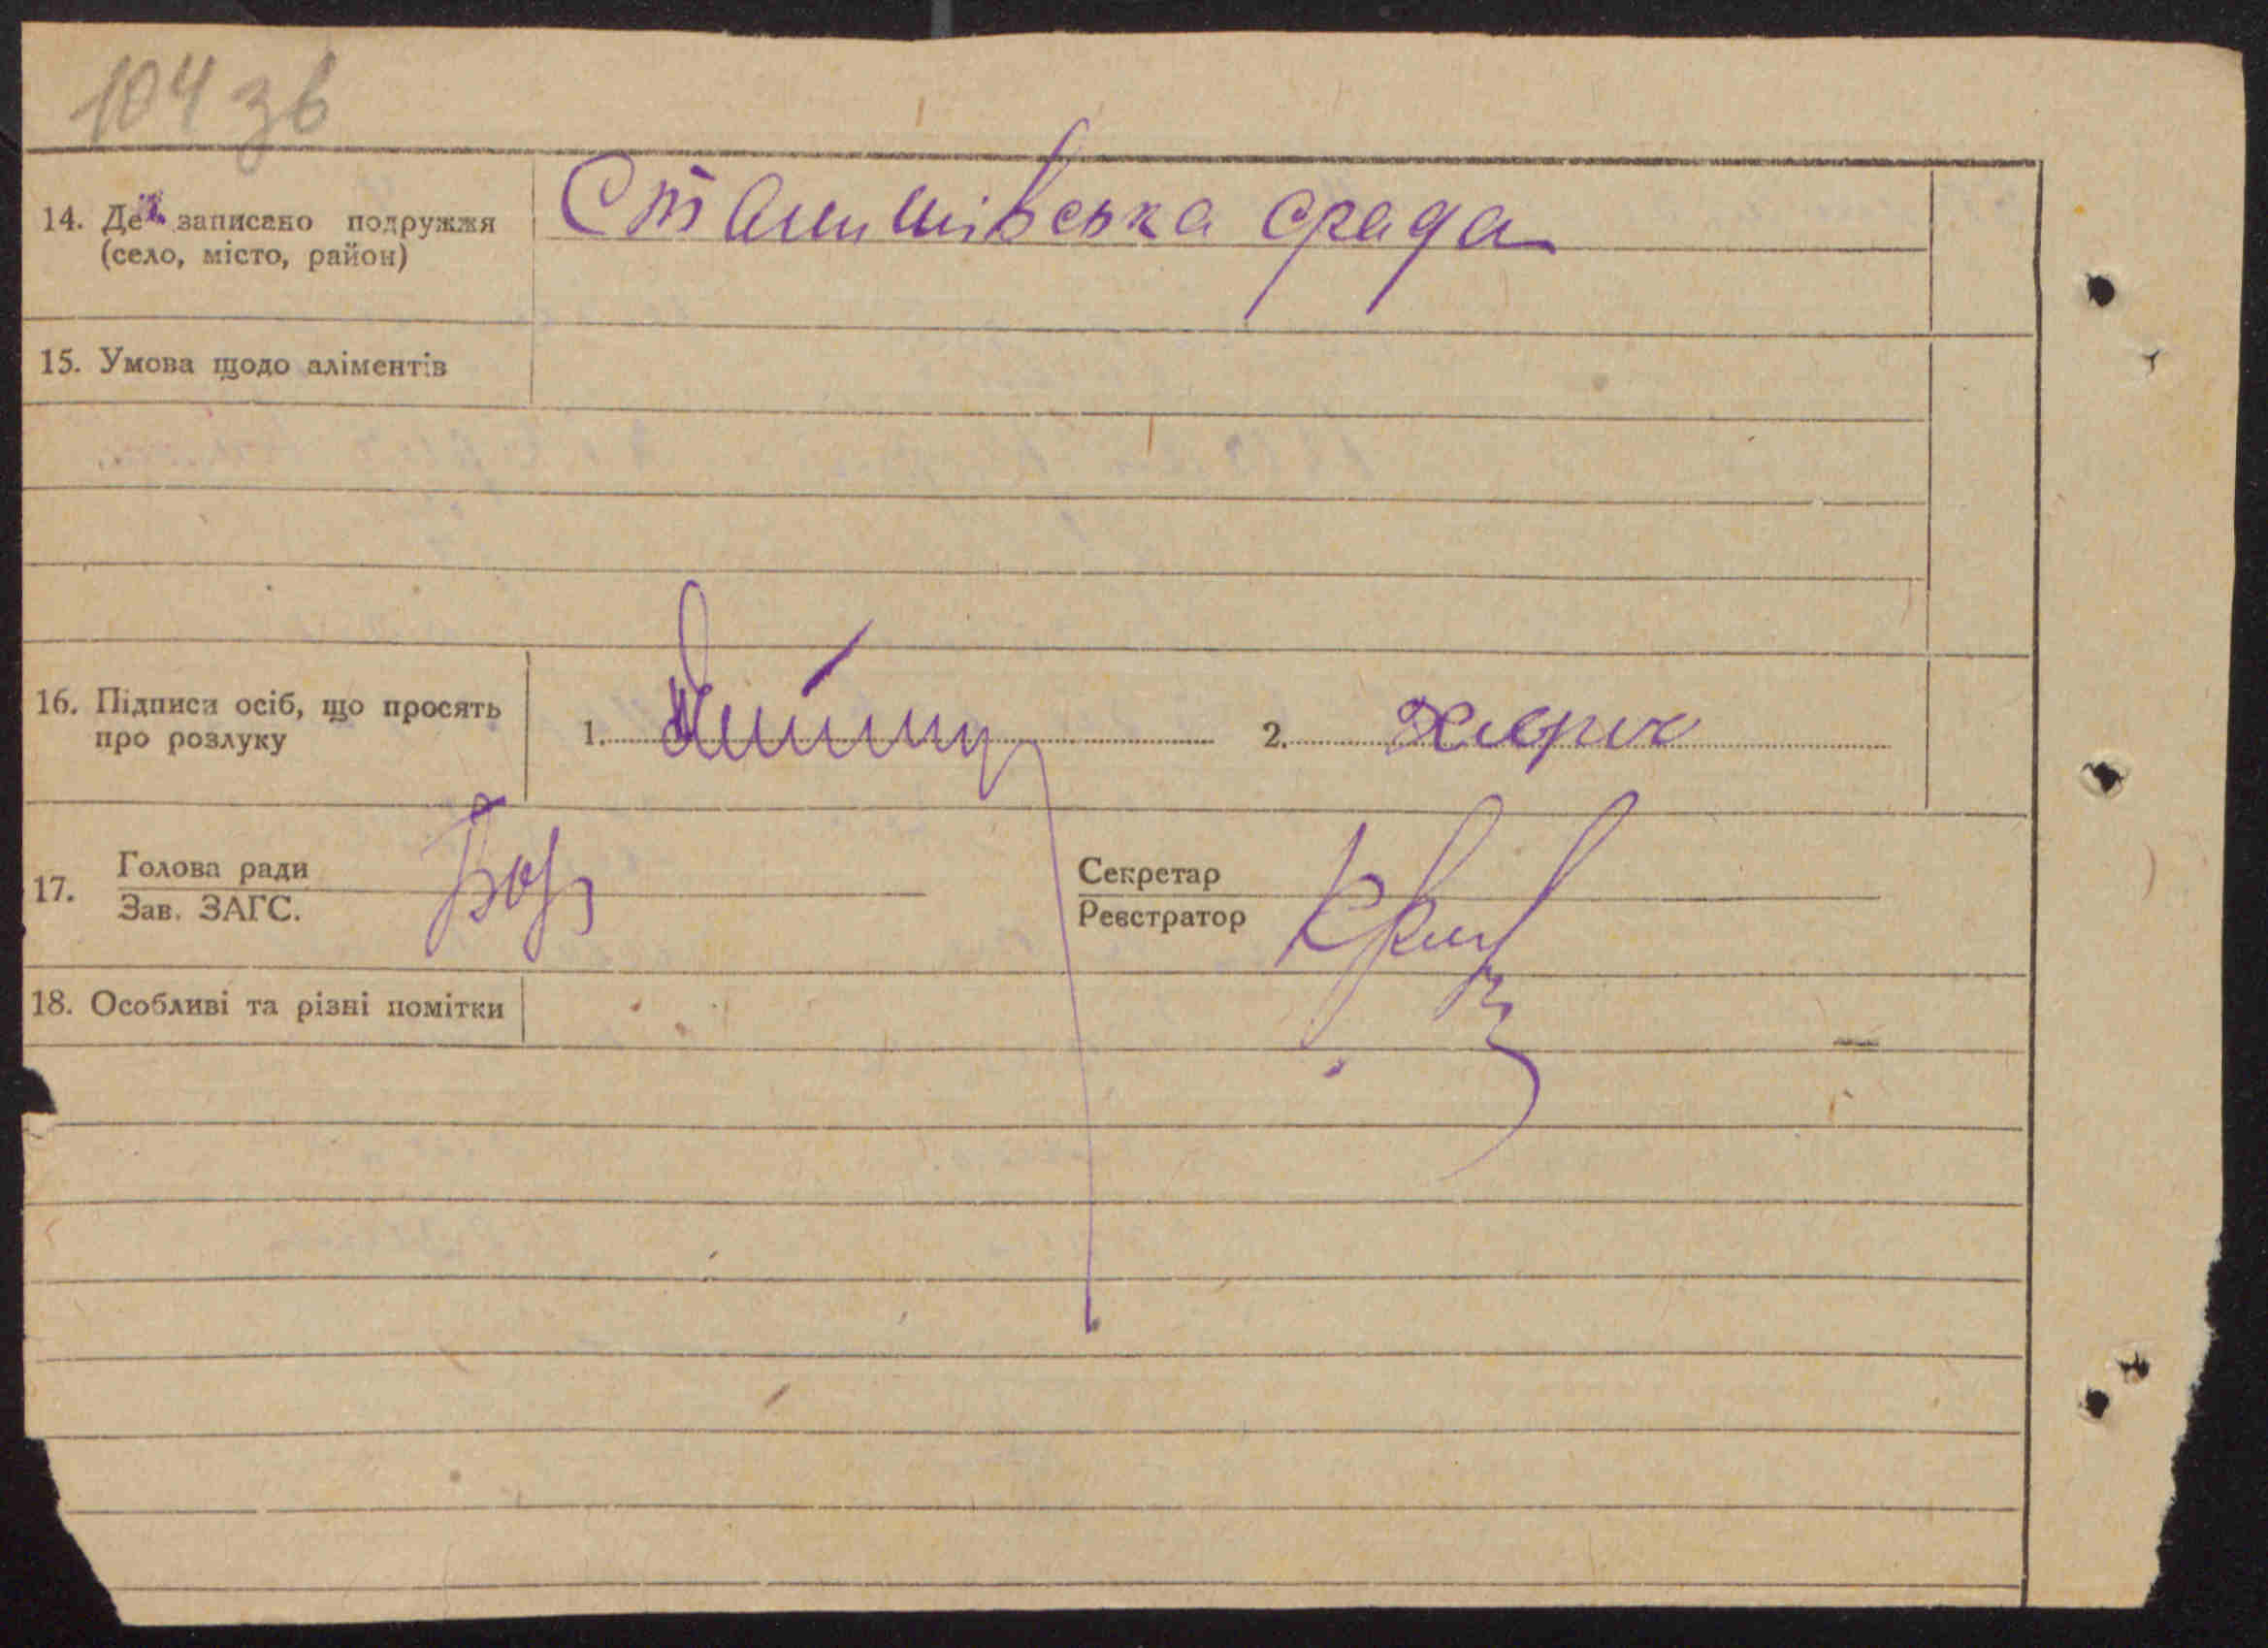 104 зв
14. Де записано подружжя Станишівська срада
(село, місто, район)
15. Умова щодо аліментів
16. Підписи осіб, що просять
про розлуку
1. 2.
17. Голова ради Секретар
Зав. ЗАГС. Реєстратор
18. Особливі та різні помітки